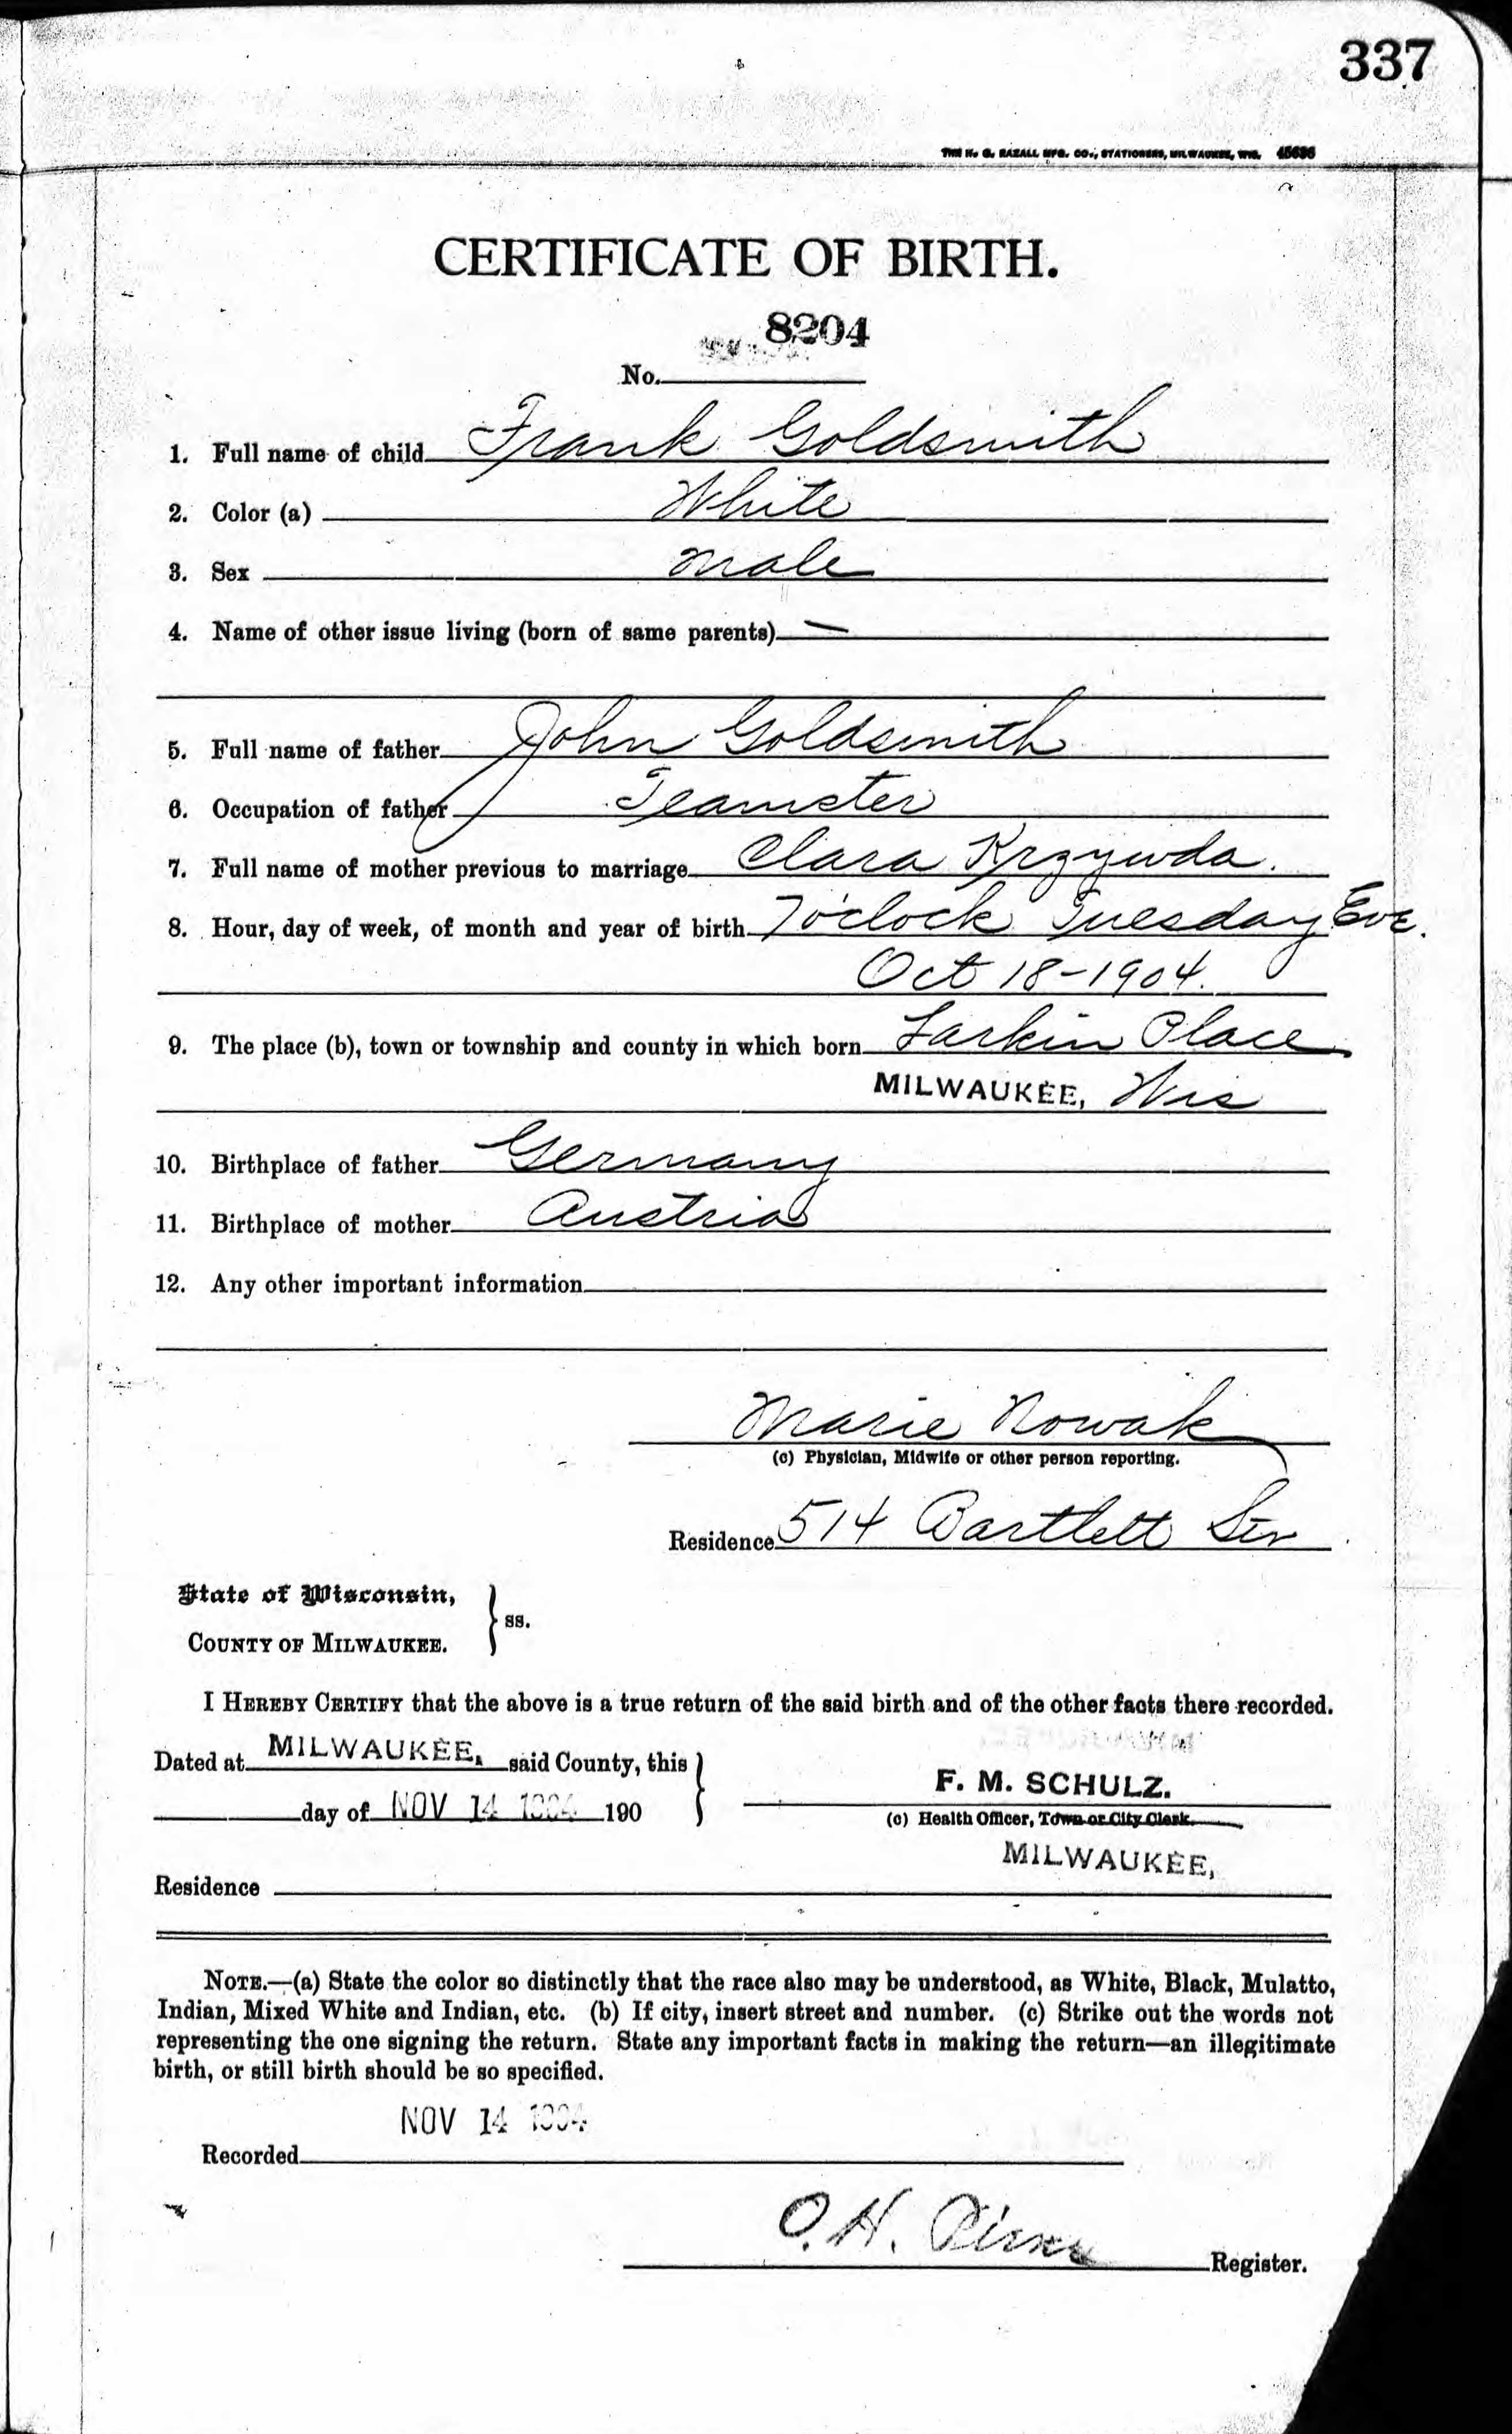 337
THE H. G. RAZALL MFG. CO., STATIONERS, MILWAUKEE, WIS. 45636
CERTIFICATE OF BIRTH.
8204
No.
1. Full name of child Frank Goldsmith
2. Color (a) White
3. Sex Male
4. Name of other issue living (born of same parents) —
5. Full name of father John Goldsmith
6. Occupation of father Teamster
7. Full name of mother previous to marriage Clara Krzywda.
8. Hour, day of week, of month and year of birth 7 o'clock Tuesday Eve.
Oct 18-1904.
9. The place (b), town or township and county in which born Larkin Place
MILWAUKEE, Wis
10. Birthplace of father Germany
11. Birthplace of mother Austria
12. Any other important information
Marie Nowak
(c) Physician, Midwife or other person reporting.
Residence 514 Bartlett
State of Wisconsin,
COUNTY OF MILWAUKEE. } ss.
I HEREBY CERTIFY that the above is a true return of the said birth and of the other facts there recorded.
Dated at MILWAUKEE, said County, this
F. M. SCHULZ.
day of NOV 14 1904 190
(c) Health Officer, Town or City Clerk.
MILWAUKEE,
Residence
NOTE.—(a) State the color so distinctly that the race also may be understood, as White, Black, Mulatto,
Indian, Mixed White and Indian, etc. (b) If city, insert street and number. (c) Strike out the words not
representing the one signing the return. State any important facts in making the return—an illegitimate
birth, or still birth should be so specified.
NOV 14 1904
Recorded
O. H.
Register.